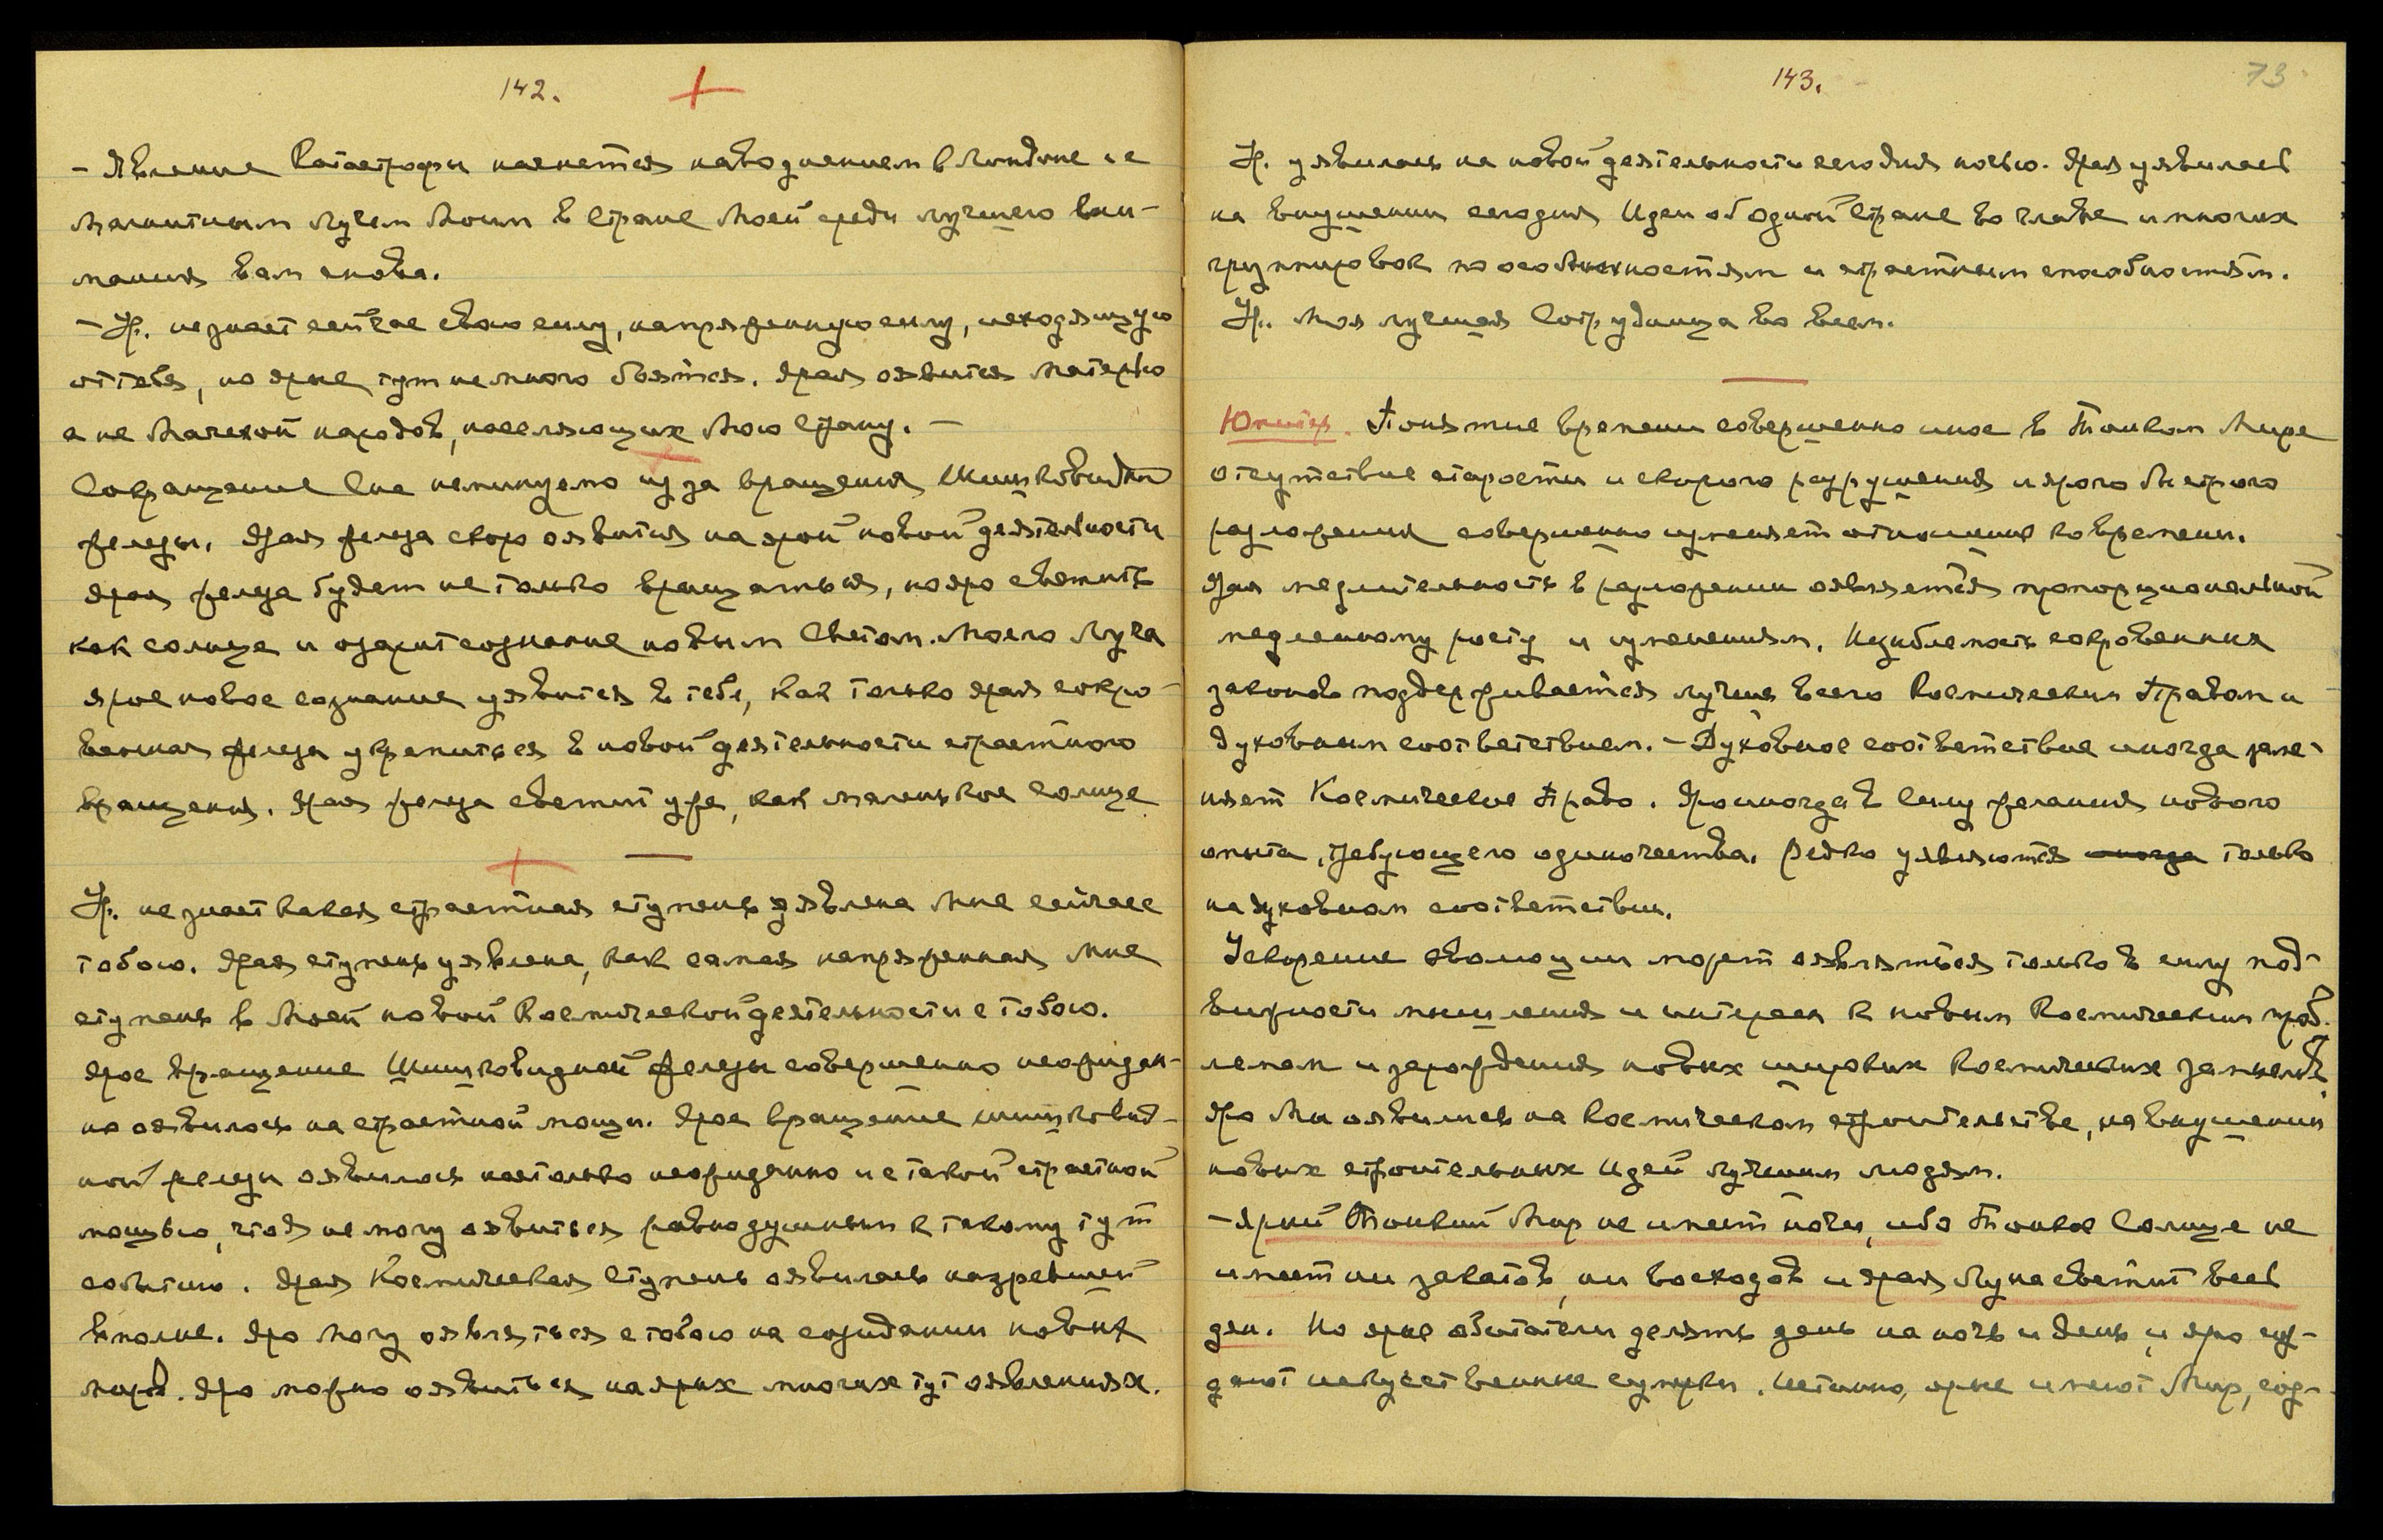 142.
- Явление Катастрофы начнется наводнением в Лондоне и с
магнитным Лучем Моим в Стране Моей среди лучшего вни-
мания вам снова.
- Ур. не знает сейчас свою силу, напряженную силу, исходящую
от тебя, но ярые тут немного боятся. Ярая оявится Матерью
а не Мачехой народов, населяющих Мою Страну. -
Сокращение Сна неминуемо из за вращения Шишковидной
железы. Ярая железа скоро оявится на ярой новой деятельности
ярая железа будет не только вращаться, но яро светить
как солнце и озарит сознание новым Светом. Моего Луча
ярое новое сознание уявится в тебе, как только ярая сокро-
венная железа укрепиться в новой деятельности страстного
вращения. Ярая железа светит уже, как маленькое Солнце
Ур. не знает какая страстная ступень уявлена Мне сейчас
тобою. Ярая ступень уявлена, как самая напряженная Мне
ступень в Моей новой Космической деятельности с тобою.
Ярое вращение Шишковидной железы совершенно неожидан-
но оявилось на страстной мощи. Ярое вращение шишковид-
ной железы оявилось настолько неожиданно и с такой страстной
мощью, что Я не могу оявиться равнодушным к такому тут
событию. Ярая Космическая Ступень оявилась назревшей
вполне. Яро Могу оявляться с тобою на созидании новых
миров. Яро можно оявиться на ярых многих тут оявлениях.
143.
73
Ур. уявилась на новой деятельности сегодня ночью. Ярая уявилась
на внушении сегодня Идеи об одной Стране во главе и многих
группировок по особенностям и страстным способностям.
Ур. Моя лучшая Сотрудница во всем.
Юпитер. Понятие времени совершенно иное в Тонком Мире
отсутствие старости и скорого разрушения и ярого быстрого
разложения совершенно изменяет отношение ко времени.
Ярая медлительность в разложении оявляется пропорциональной
медленному росту и изменениям. Незыблемость сокровенных
законов поддерживается лучше всего Космическим Правом и
духовным соответствием. - Духовное соответствие иногда заме-
няет Космическое Право. Яро иногда в силу желания нового
опыта, требующего одиночества. Редко уявляются иногда только
на духовном соответствии.
Ускорение эволюции может оявляться только в силу под-
вижности мышления и интереса к новым Космическим проб-
лемам и зарождения новых широких Космических замыслов
Яро Мы оявились на Космическом строительстве, на внушении
новых строительных Идей лучшим людям.
- Ярый Тонкий Мир не имеет ночи, ибо Тонкое Солнце не
имеет ни закатов, ни восходов и ярая Луна светит весь
ден. Но ярые обитатели делять день на ночь и день, и яро соз-
дают искусственные сумерки. Истинно, ярые имеют Мир, соз-